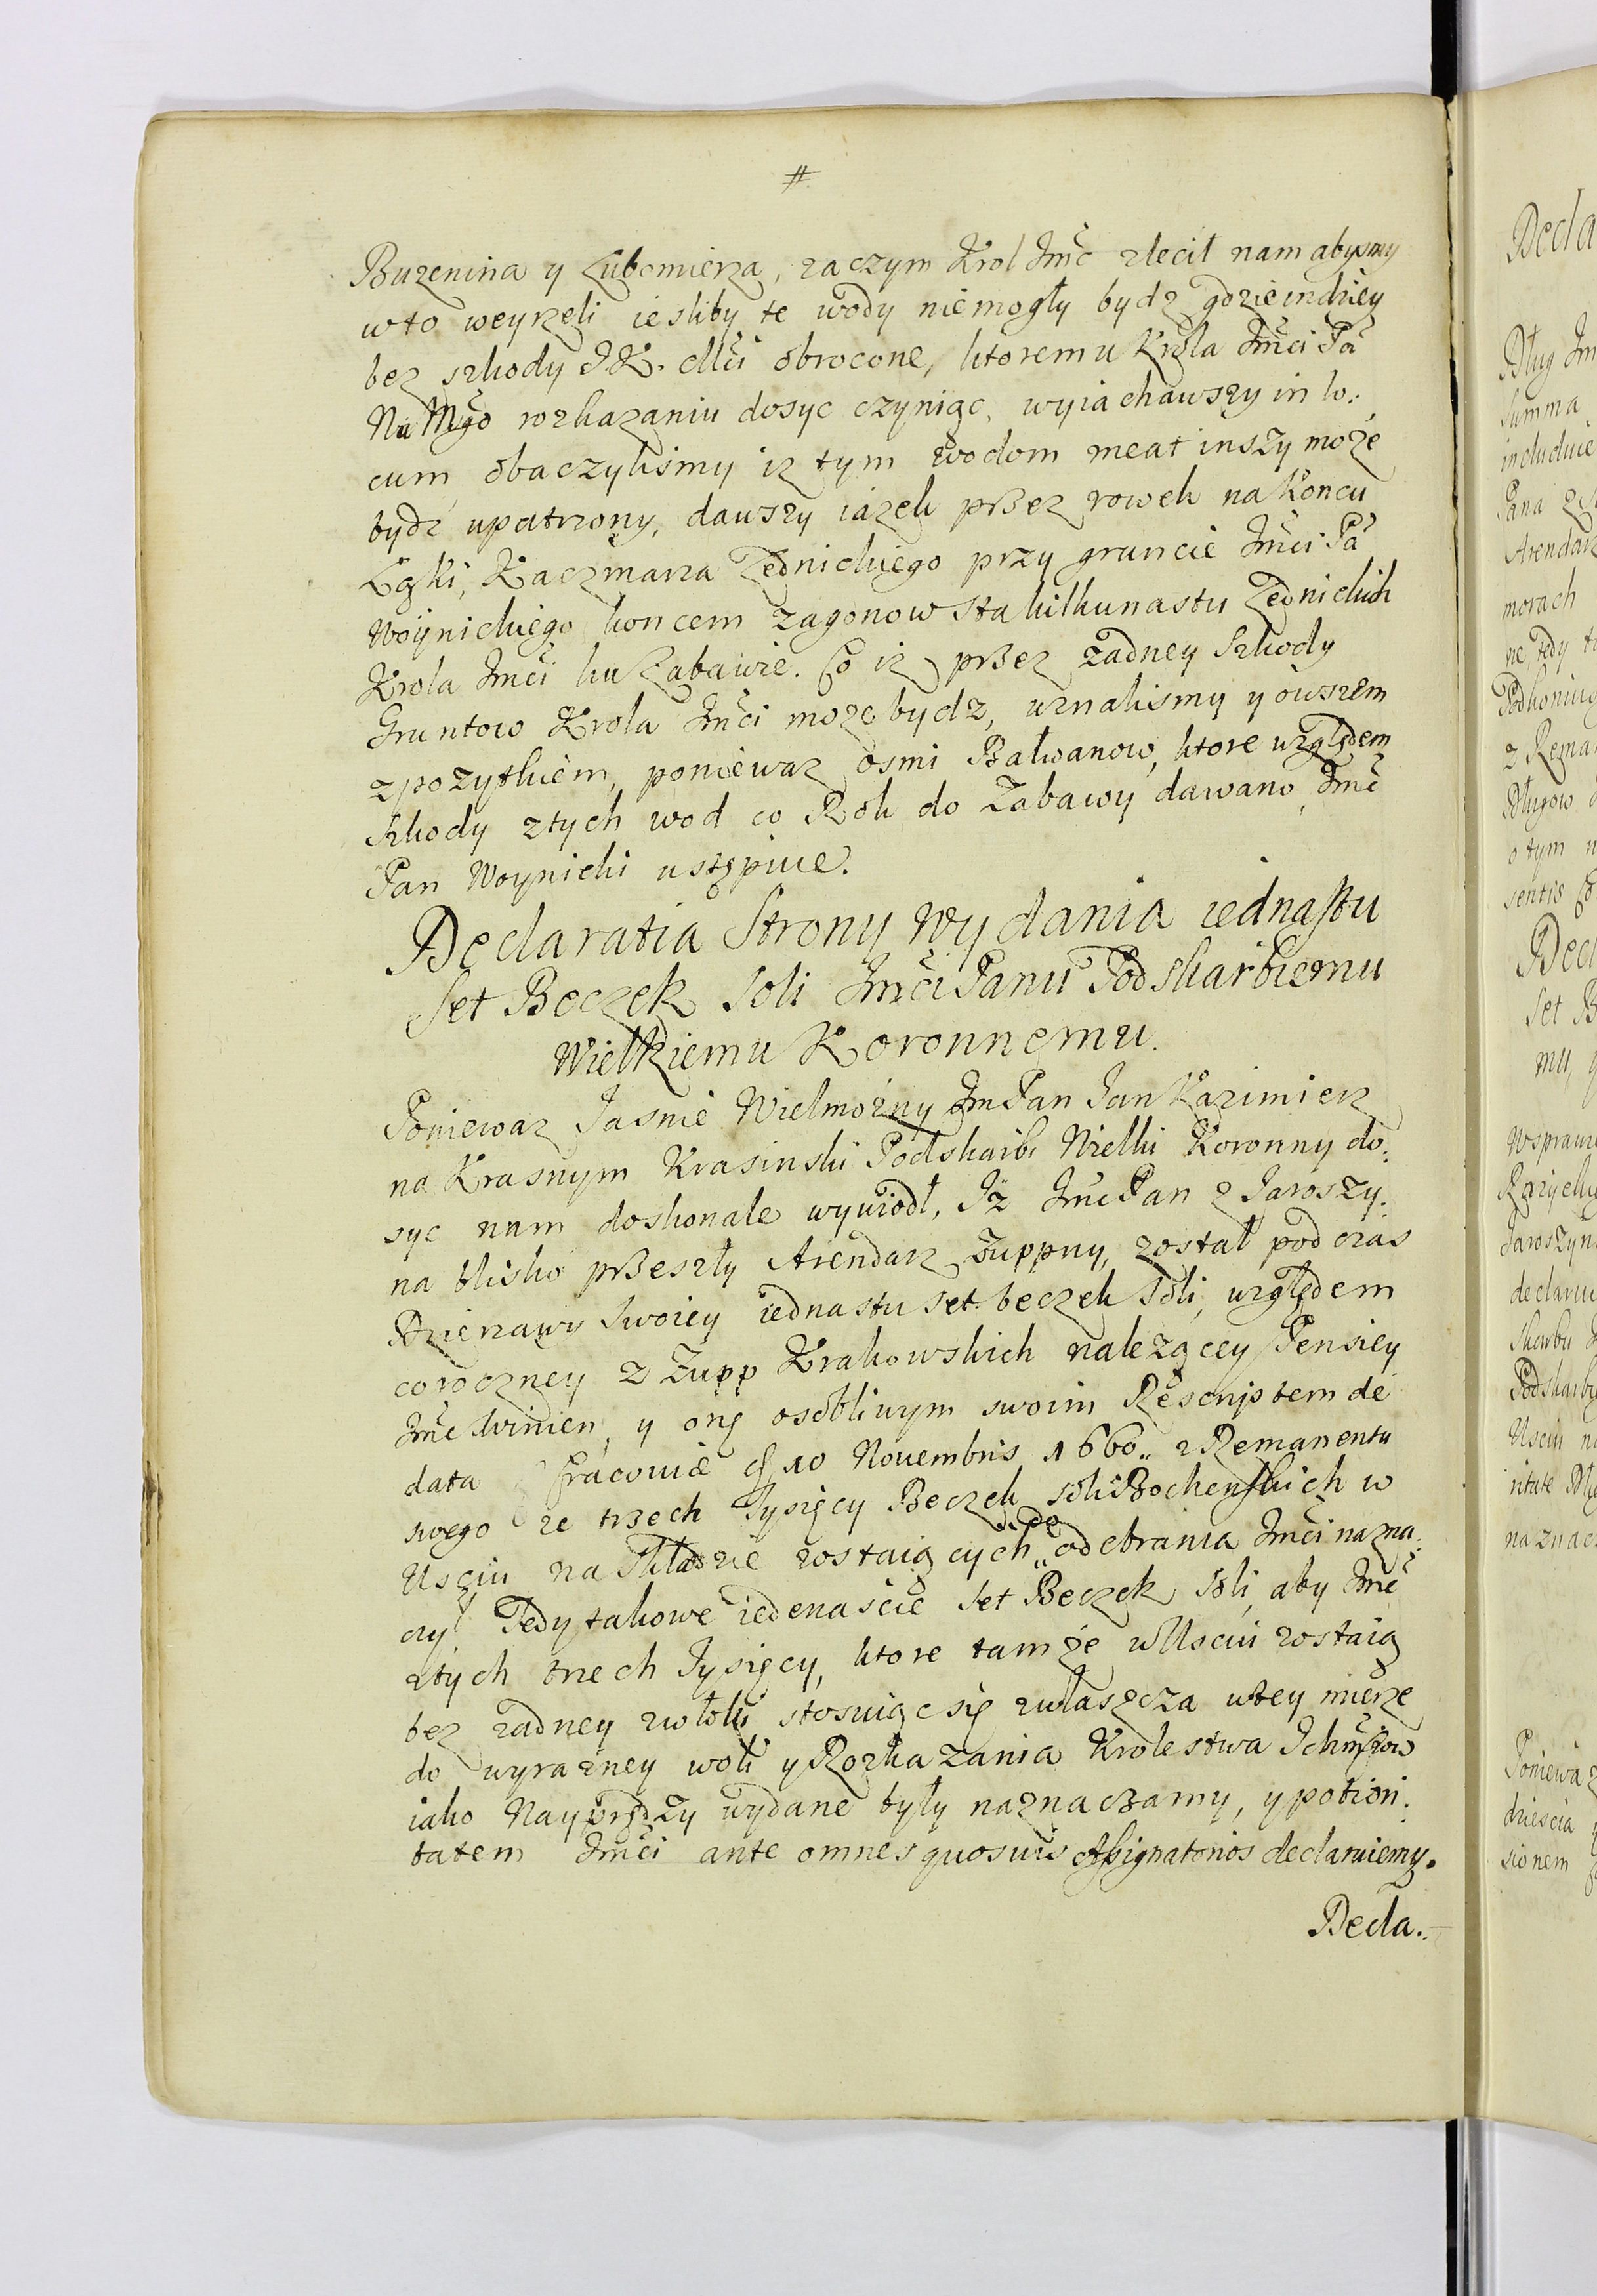 #
Buzenina y Lubomierza, zaczym Krol Jmć zlecił nam abysmy
w to weyrzeli iesliby te wody niemogły bydz gdzieindziey
bez szkody J K. Mći obrocone, ktoremu Krola Jmći Pa
Na Mgo rozkazaniu dosyc czyniąc, wyiachawszy in lo:
cum, obaczylismy iz tym wodom meat inszy może
bydź upatrzony, dawszy iazek przez rowek na Koncu
Łąki, Kaczmarza Lednickiego przy gruncie Jmći Pa
Woynickiego koncem zagonow sta kilkunastu Lednickich
Krola Jmći ku Zabawie. Co iz przez żadney Szkody
Gruntow Krola Jmći może bydz, uznalismy y owszem
z pozytkiem, poniewaz osmi Bałwanow, ktore względem
Szkody z tych wod co Rok do Zabawy dawano, Jmć
Pan Woynicki ustąpiue.
Declaratia Strony Wydania iednastu
Set Beczek Soli Jmći Panu Podskarbiemu
Wielkiemu Koronnemu.
Poniewaz Jasnie Wielmożny Jm Pan Jan Kazimierz
na Krasnym Krasinski Podskarbi Wielki Koronny do:
syc nam doskonale wywiodł, Jż Jmć Pan z Jaroszy:
na blisko przeszły Arendarz Zuppny, został pod czas
Dzierzawy Swoiey iednastu set beczek Soli, względem
coroczney z Zupp Krakowskich nalezącey Pensiey
Jmć winien, y onę osobliwym swoim Rescriptem de
data Cracoviæ 10 Novembris 1660.. z Remanentu
swego ze trzech Tysięcy Beczek soli Bochenskich w
Usciu na Składzie zostaiących.. do odebrania Jmći nazna:
czył Tedy takowe iedenascie Set Beczek Soli, aby Jmć
z tych trzech Tysięcy, ktore tamże w Usciu zostaią
bez zadney zwłoki, stosuiąc się zwłaszcza w tey mierze
do wyrazney woli y Rozkazania Krolestwa Ichmćiow
iako Nayprędzy wydane były naznaczamy, y potiori:
tatem Jmći ante omnes quosuis Assignatorios declaruiemy.
Decla..